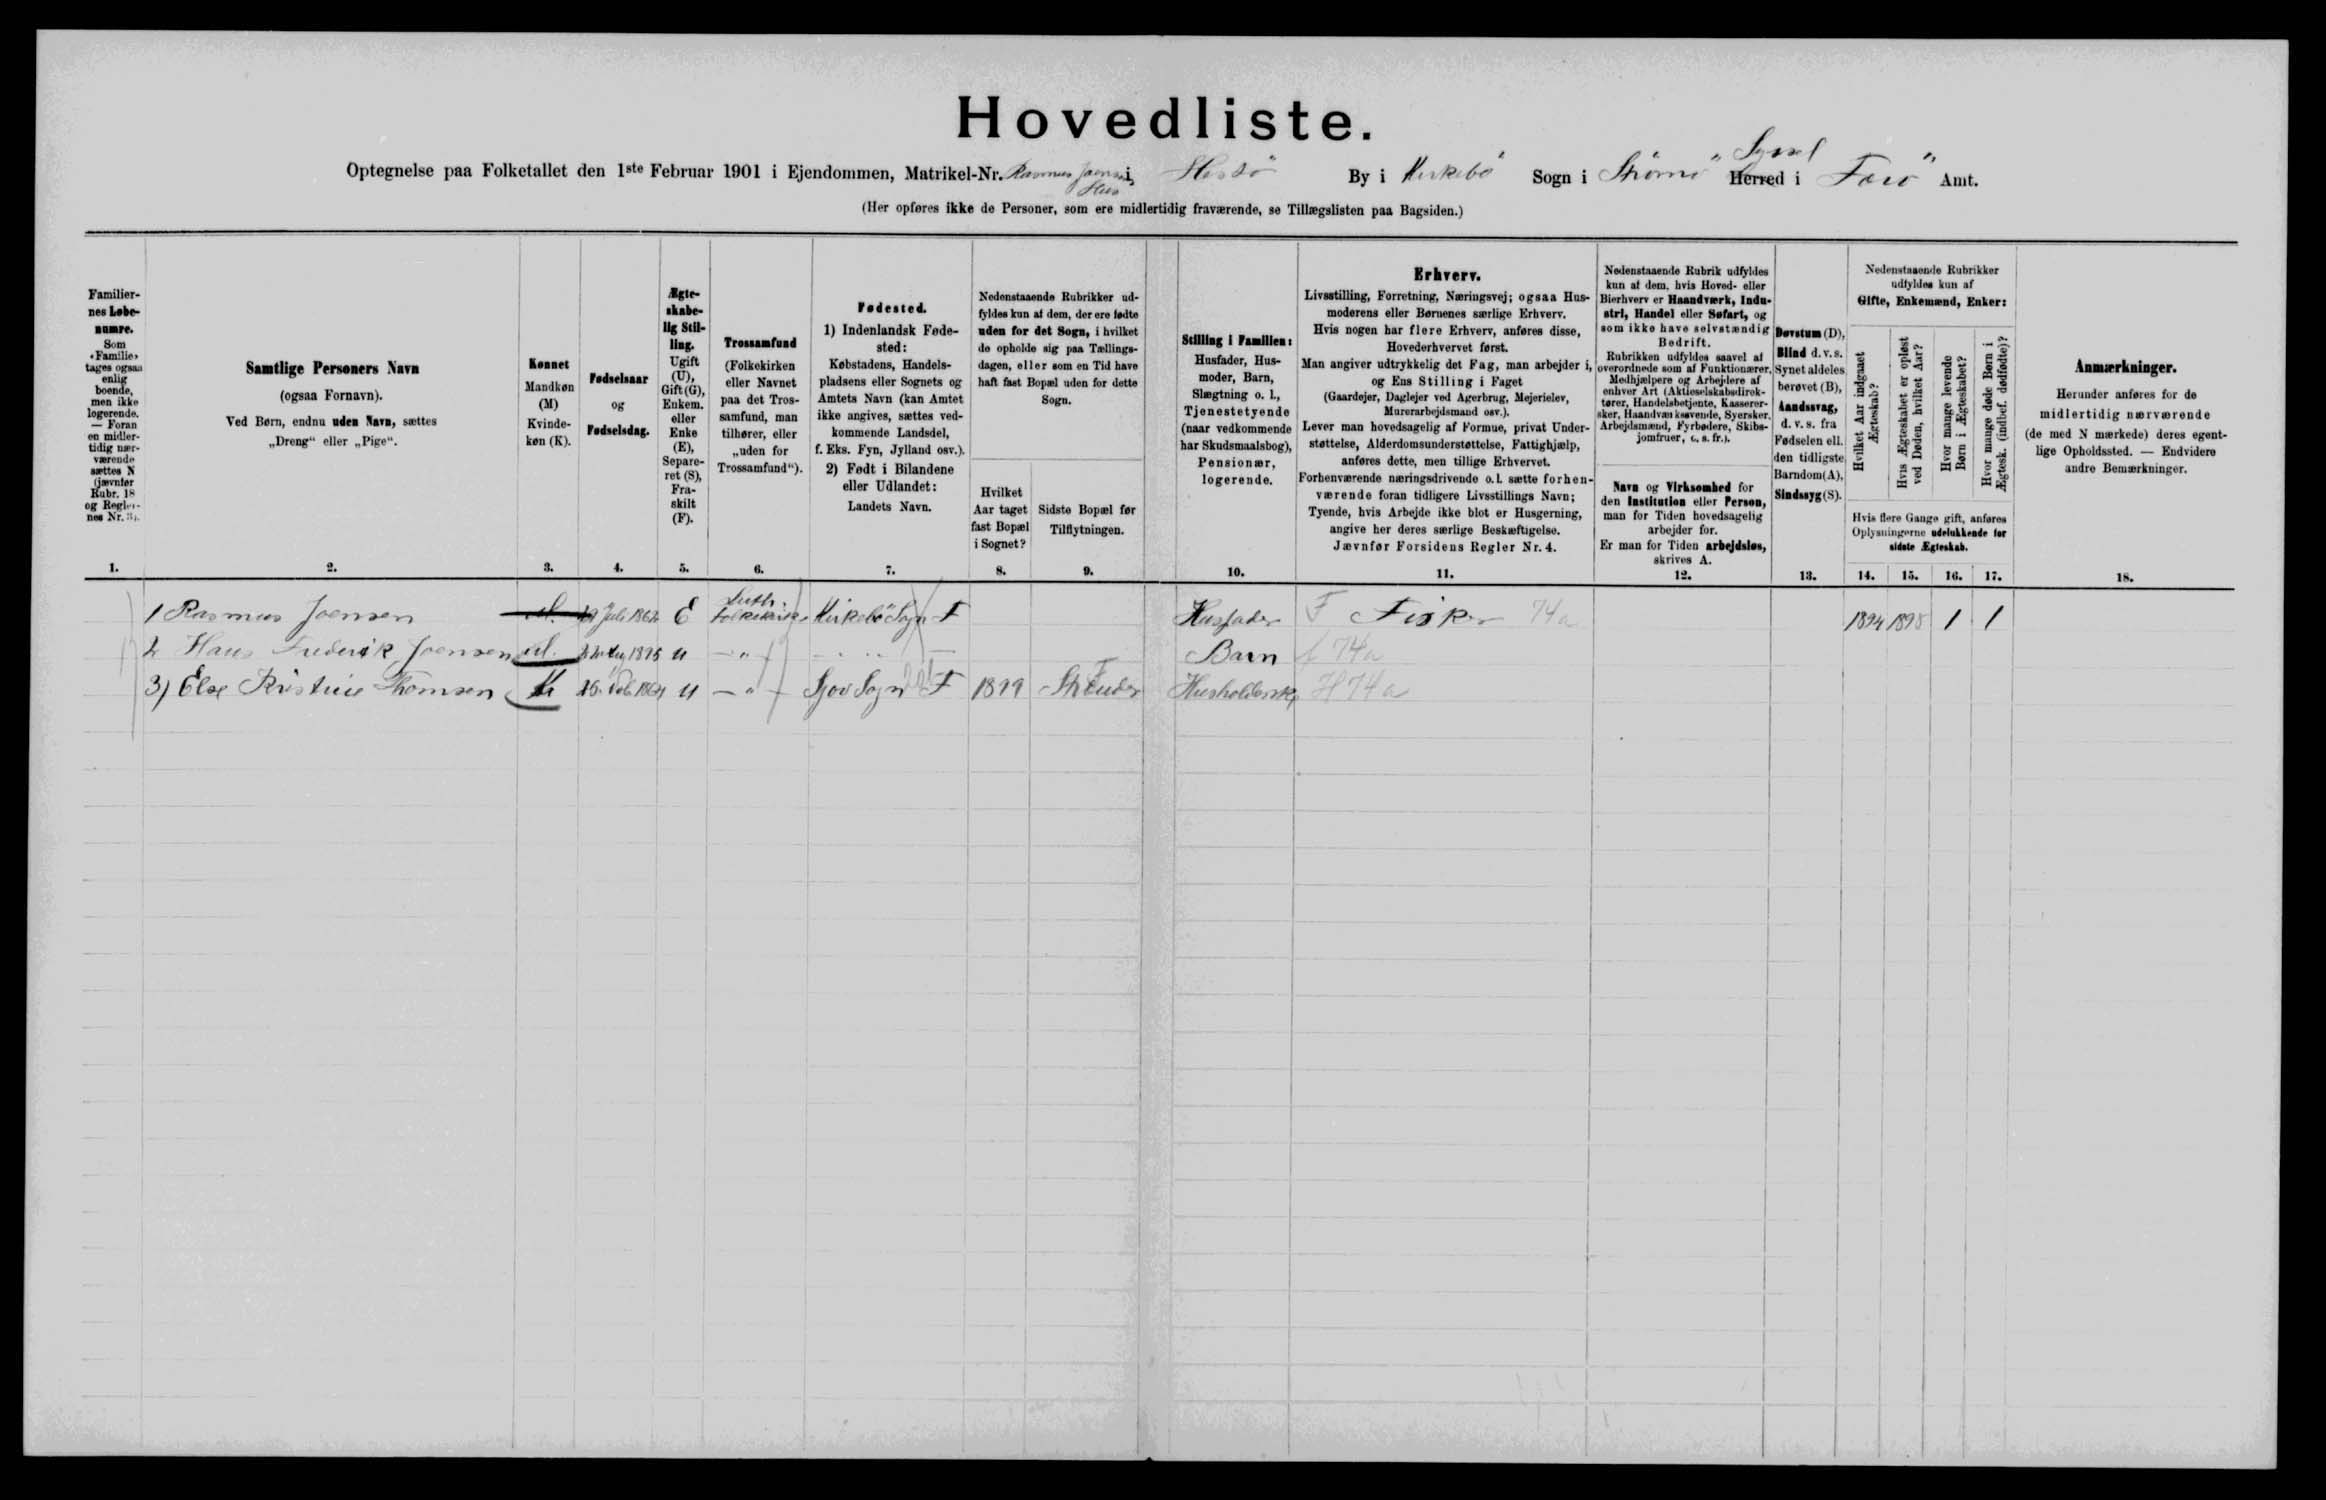 Hovedliste.
Optegnelse paa Folketallet den 1ste Februar 1901 i Ejendommen, Matrikel-Nr. Rasmus Joensens Hus i Hestö By i Kirkebö Sogn i Strömö Syssel Herred i Færö Amt.
(Her opføres ikke de Personer, som ere midlertidig fraværende, se Tillægslisten paa Bagsiden.)
Familiernes Løbenumre.
Som «Familie» tages ogsaa enlig boende, men ikke logerende. — Foran en midlertidig nærværende sættes N (jævnfør Rubr. 18 og Reglernes Nr. 3).
Samtlige Personers Navn
(ogsaa Fornavn).
Ved Børn, endnu uden Navn, sættes
„Dreng“ eller „Pige“.
Kønnet
Mandkøn (M)
Kvindekøn (K).
Fødselsaar
og
Fødselsdag.
Ægteskabelig Stilling.
Ugift (U), Gift (G), Enkem. eller Enke (E), Separeret (S), Fraskilt (F).
Trossamfund
(Folkekirken eller Navnet paa det Trossamfund, man tilhører, eller „uden for Trossamfund“).
Fødested.
1) Indenlandsk Fødested:
Købstadens, Handelspladsens eller Sognets og Amtets Navn (kan Amtet ikke angives, sættes vedkommende Landsdel, f. Eks. Fyn, Jylland osv.).
2) Født i Bilandene eller Udlandet:
Landets Navn.
Nedenstaaende Rubrikker udfyldes kun af dem, der ere fødte uden for det Sogn, i hvilket de opholde sig paa Tællingsdagen, eller som en Tid have haft fast Bopæl uden for dette Sogn.
Hvilket Aar taget fast Bopæl i Sognet?
Sidste Bopæl før Tilflytningen.
Stilling i Familien:
Husfader, Husmoder, Barn, Slægtning o. l., Tjenestetyende (naar vedkommende har Skudsmaalsbog), Pensionær, logerende.
Erhverv.
Livsstilling, Forretning, Næringsvej; ogsaa Husmoderens eller Børnenes særlige Erhverv.
Hvis nogen har flere Erhverv, anføres disse, Hovederhvervet først.
Man angiver udtrykkelig det Fag, man arbejder i, og Ens Stilling i Faget
(Gaardejer, Daglejer ved Agerbrug, Mejerielev, Murerarbejdsmand osv.).
Lever man hovedsagelig af Formue, privat Understøttelse, Alderdomsunderstøttelse, Fattighjælp, anføres dette, men tillige Erhvervet.
Forhenværende næringsdrivende o. l. sætte forhenværende foran tidligere Livsstillings Navn;
Tyende, hvis Arbejde ikke blot er Husgerning, angive her deres særlige Beskæftigelse.
Jævnfør Forsidens Regler Nr. 4.
Nedenstaaende Rubrik udfyldes kun af dem, hvis Hoved- eller Bierhverv er Haandværk, Industri, Handel eller Søfart, og som ikke have selvstændig Bedrift.
Rubrikken udfyldes saavel af overordnede som af Funktionærer, Medhjælpere og Arbejdere af enhver Art (Aktieselskabsdirektører, Handelsbetjente, Kasserersker, Haandværkssvende, Syersker, Arbejdsmænd, Fyrbødere, Skibsjomfruer, o. s. fr.).
Navn og Virksomhed for den Institution eller Person, man for Tiden hovedsagelig arbejder for.
Er man for Tiden arbejdsløs, skrives A.
Døvstum (D), Blind d. v. s. Synet aldeles berøvet (B), Aandssvag, d. v. s. fra Fødselen ell. den tidligste Barndom (A), Sindssyg (S).
Nedenstaaende Rubrikker udfyldes kun af
Gifte, Enkemænd, Enker:
Hvilket Aar indgaaet Ægteskab?
Hvis Ægteskabet er opløst ved Døden, hvilket Aar?
Hvor mange levende Børn i Ægteskabet?
Hvor mange døde Børn i Ægtesk. (indbef. dødfødte)?
Hvis flere Gange gift, anføres Oplysningerne udelukkende for sidste Ægteskab.
Anmærkninger.
Herunder anføres for de midlertidig nærværende (de med N mærkede) deres egentlige Opholdssted. — Endvidere andre Bemærkninger.
1. 2. 3. 4. 5. 6. 7. 8. 9. 10. 11. 12. 13. 14. 15. 16. 17. 18.
1 Rasmus Joensen M. Juli 1862 E Luth. Folkekirke Kirkebö Sogn F Husfader F Fisker 74a 1894 1898 1 1
2 Hans Frederik Joensen M. 22 Aug 1895 U — " — Barn f 74a
3) Else Kristine Thomsen K 1864 U — " — Sjov Sogn F 1899 Husholderske H 74a